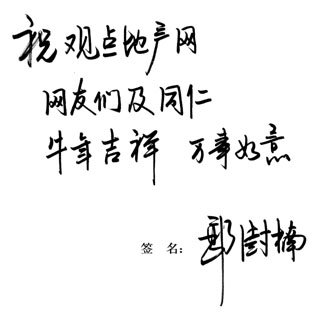 祝观点地产网
网友们及同仁
牛年吉祥 万事如意
签 名: